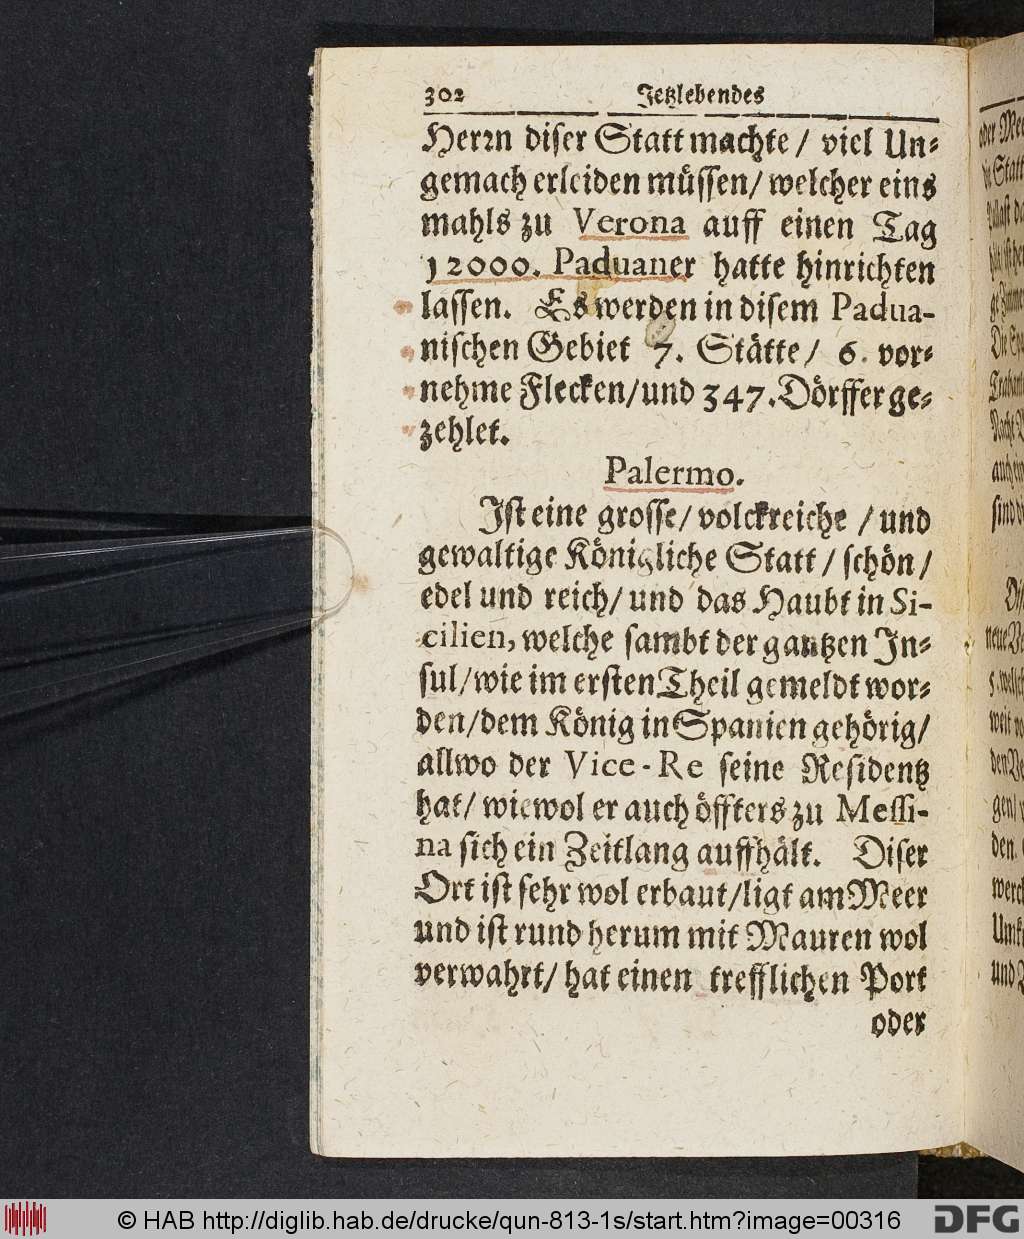 302 Jetzlebendes
Herꝛn diser Statt machte / viel Un⸗
gemach erleiden müssen / welcher eins
mahls zu Verona auff einen Tag
12000. Paduaner hatte hinrichten
lassen. Es werden in disem Padua-
nischen Gebiet 7. Stätte / 6. vor⸗
nehme Flecken / und 347. Dörffer ge⸗
zehlet.
Palermo.
Ist eine grosse / volckreiche / und
gewaltige Königliche Statt / schön /
edel und reich / und das Haubt in Si-
cilien, welche sambt der gantzen In⸗
sul / wie im ersten Theil gemeldt wor⸗
den / dem König in Spanien gehörig /
allwo der Vice-Re seine Residentz
hat / wiewol er auch öffters zu Messi-
na sich ein Zeitlang auffhält. Diser
Ort ist sehr wol erbaut / ligt am Meer
und ist rund herum mit Mauren wol
verwahrt / hat einen trefflichen Port
oder
© HAB http://diglib.hab.de/drucke/qun-813-1s/start.htm?image=00316
DFG